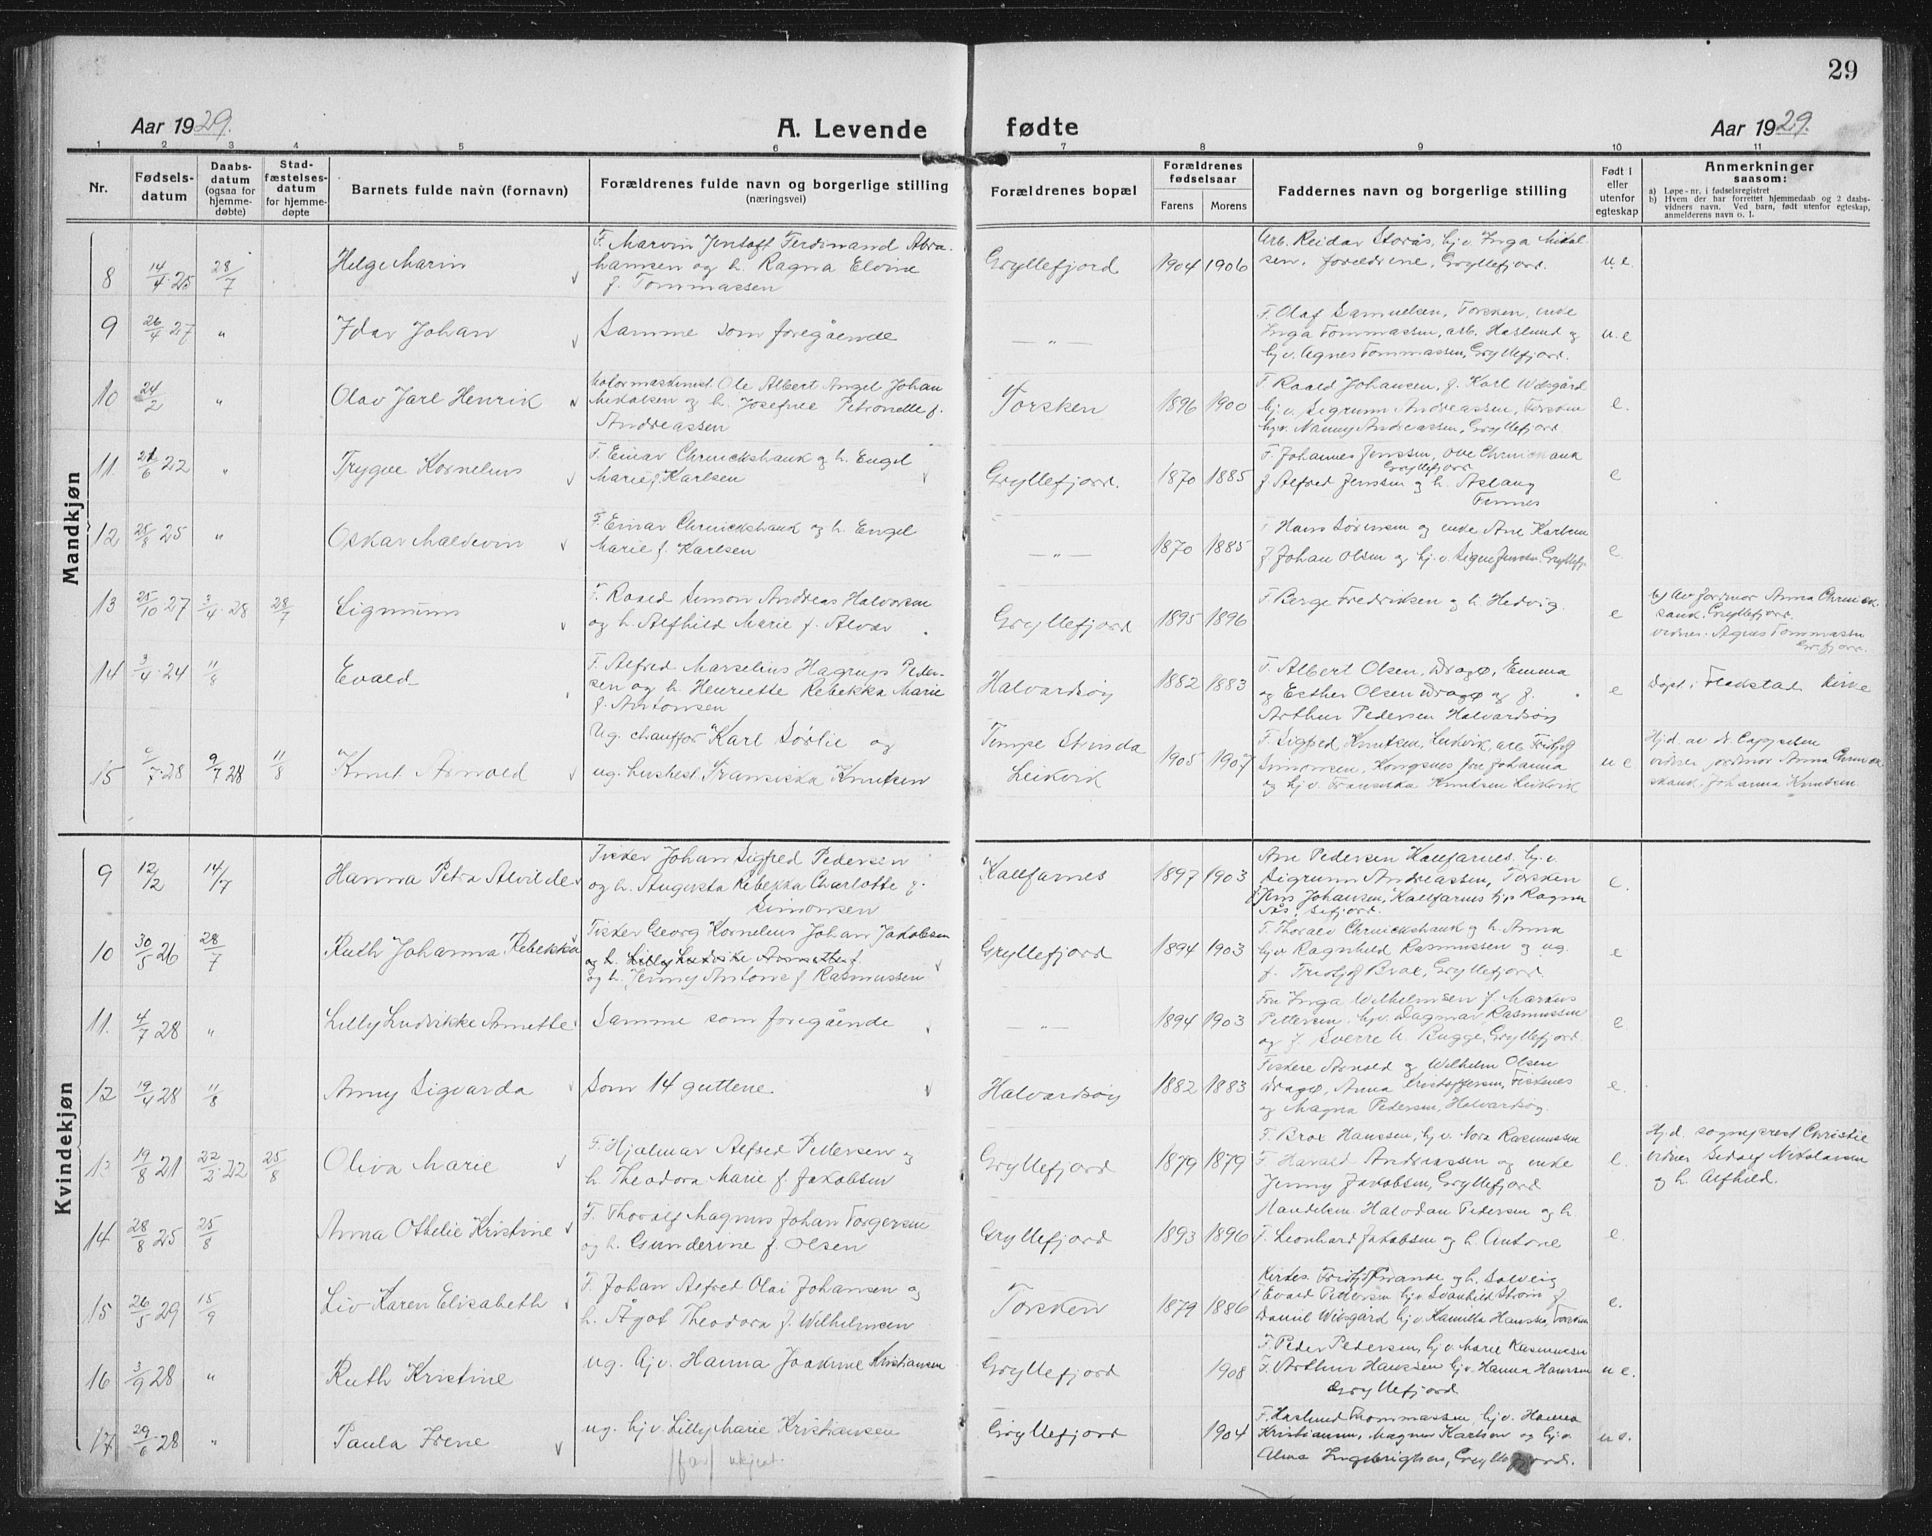 29
Aar 1929. A. Levende fødte Aar 1929.
1 2 3 4 5 6 7 8 9 10 11
Nr. Fødsels-datum Daabs-datum (ogsaa for hjemme-døbte) Stad-fæstelses-datum for hjemme-døpte Barnets fulde navn (fornavn) Forældrenes fulde navn og borgerlige stilling (næringsvei) Forældrenes bopæl Forældrenes fødselsaar Farens Morens Faddernes navn og borgerlige stilling Født i eller utenfor egteskap Anmerkninger saasom:
a) Løpe-nr. i fødselsregistret
b) Hvem der har forrettet hjemmedaab og 2 daabs-vidners navn. Ved barn, født utenfor egteskap, anmelderens navn o. l.
Mandkjøn
8 14/4 25 28/7 Helge Marin F. Marvin Jentoft Ferdinand Abra-
hamsen og h. Ragna Elvine
f. Tommassen
Gryllefjord 1904 1906 Arb. Reidar Storås, hj.v. Inga Mikal-
sen, foreldrene, Gryllefjord. u.e.
9 26/4 27 " Idar Johan Samme som foregående — " — F. Olaf Samuelsen, Torsken, enke
Inga Tommassen, arb. Haslund og
hj.v. Agnes Tommassen, Gryllefjord. u.e
10 24/2 " Olav Jarl Henrik Motormaskinist Ole Albert Angel Johan
Mikalsen og h. Josefine Petronelle f.
Andreassen
Torsken 1896 1900 F. Roald Johansen, f. Karl
hj.v. Sigrunn Andreassen, Torsken
hj.v. Nanny Andreassen, Gryllefjord e.
11. 21/6 22 " Trygve Kornelius F. Einar Chruickshank og h. Engel
Marie f. Karlsen
Gryllefjord. 1870 1885 F. Johannes Jenssen, Ove Chruickshank
Gryllefjord
f. Alfred Jenssen og h. Aslaug
Finnes e
12 25/8 25 " Oskar Maldevin F. Einar Chruickshank og h. Engel
Marie f. Karlsen
— " — 1870 1885 F. Hans Sørensen og enke Ane Karlsen
f. Johan Olsen og hj.v. Signe Jensen Gryllefj. e
13 25/10 27 3/4 28 28/7 Sigmunn F. Roald Simon Andreas Halvorsen
og h. Alfhild Marie f. Alvær
Gryllefjord 1895 1896 F. Berge Fredriksen og h. Hedvig. e b) Av jormor Anna Chruick-
shank Gryllefjord.
vidner: Agnes Tommassen
Gr.fjord.
14 3/4 24 11/8 Evald F. Alfred Marselius Hagrup Peder-
sen og h. Henriette Rebekka Marie
f. Antonsen
Halvardsøy 1882 1883 F. Albert Olsen, Dragø, Emma
og Esther Olsen Dragø og f.
Arthur Pedersen Halvardsøy e Døpt i Flakstad kirke
15 7 28 9/7 28 11/8 Knut Arnold Ug. chauffør Karl Sörlie og
ug. Franciska Knutsen
Tempe Strinda
Leikvik
1905 1907 F. Sigfred Knutsen, Leikvik, arb. Fridtjof
Simonsen, Kongsnes fru Johanna
og hj.v. Franciska Knutsen Leikvik u e Hj.d. av dr. Cappelen
vidner jordmor Anna Chruick-
shank. Johanna Knutsen.
Kvindekjøn
9 12/12 14/7 Hanna Petra Alvilde Fisker Johan Sigfred Pedersen
og h. Augusta Rebekka Charlotte f.
Simonsen
Kalfarnes 1897 1903 Arn Pedersen Kalfarnes, hj.v.
Sigrunn Andreassen, Torsken
Jens Johansen, Kalfarnes hj.v. Ragna
Ås, Sifjord. e.
10 30/5 26 28/7 Ruth Johanna Rebekka Fisker Georg Kornelius Johan Jakobsen
og h. Lilly Ludvikke Annette f.
og h. Jenny Antone f. Rasmussen
Gryllefjord 1894 1903 F. Thoralv Chruickshank og h. Anna
hj.v Ragnhild Rasmussen og ug.
f. Fridtjof Broe, Gryllefjord. e
11. 4/7 28 " Lilly Ludvikke Annette Samme som foregående — " — 1894 1903 Fru Inga Wilhelmsen f. Markus
Pettersen, hj.v. Dagmar Rasmussen
og f. Sverre A. Bugge, Gryllefjord. e.
12 19/4 28 11/8 Anny Sigvarda Som 14 guttene Halvardsøy 1882 1883 Fiskere Arnold og Wilhelm Olsen
Dragø, Anna Kristoffersen, Fisknes
og Magna Pedersen, Halvardsøy. e.
13 19/8 21 22/2 22 25/8 Oliva Marie F. Hjalmar Alfred Pettersen og
h. Theodora Marie f. Jakobsen
Gryllefjord 1879 1879 F. Broe Hanssen, hj.v. Nora Rasmussen
F. Harald Andreassen og enke
Jenny Jakobsen, Gryllefjord e. Hj.d. sogneprest Christie
vidner Sedolf Nikolaisen
og h. Alfhild.
14 28/8 25 25/8 Anna Othelie Kristine F. Thoralf Magnus Johan Torgersen
og h. Gunderine f. Olsen
Gryllefjord 1893 1896 Handelsm. Halvdan Pedersen og h.
F. Leonhard Jakobsen og h. Antone e.
15 26/5 29 15/9 Liv Karen Elisabeth F. Johan Alfred Olai Johansen og
h. Ågot Theodora f. Wilhelmsen
Torsken 1879 1886 Kirkes. Fridtjof og h. Solveig
f. Evald Pettersen hj.v Svanhild Strøm f.
Daniel hj.v. Kamilla Hanssen, Torsken e.
16 3/9 28 " Ruth Kristine ug. hj.v. Hanna Joakime Kristiansen Gryllefjord 1908 F. Peder Pedersen, hj.v. Marie Rasmussen
F. Arthur Hanssen hj.v. Hanna Hanssen
Gryllefjord u e.
17 29/6 28 " Paula Irene ug. hj.v. Lilly Marie Kristiansen
/far/ ukjent.
Gryllefjord 1904 F. Haslund Thommassen, hj.v. Hanna
Kristiansen, Magna Karlsen og hj.v.
Alma Ingebrigtsen, Gryllefjord. u e.